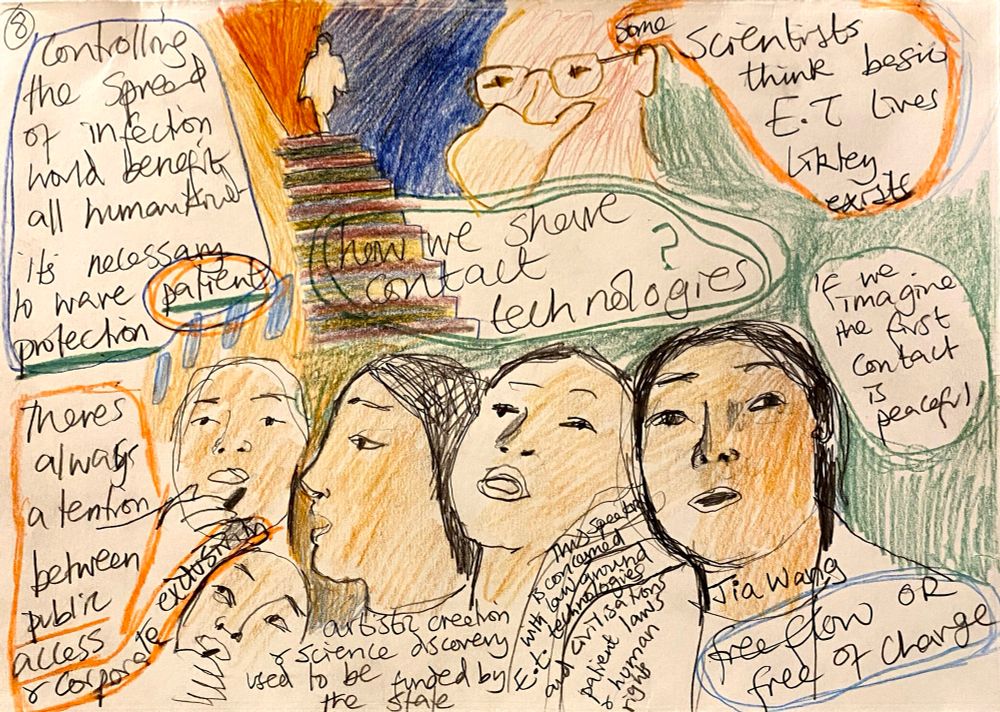 8
Controlling
the spread
of infection
would benefit
all humankind
its necessary
to wave patient
protection
Some
Scientists
think basic
E.T Lives
likley
exists
how we share
contact ?
technologies
If we
imagine
the first
contact
is
peaceful
Theres
always
a tention
between
public
access
& corporate
exclusion
artistic creation
& science discovery
used to be funded by
the state
This speaker
is concerned
with law ground
E.t. technologies
and civilisations
patient laws
& human
right
Jia Wang
free flow OR
free of charge